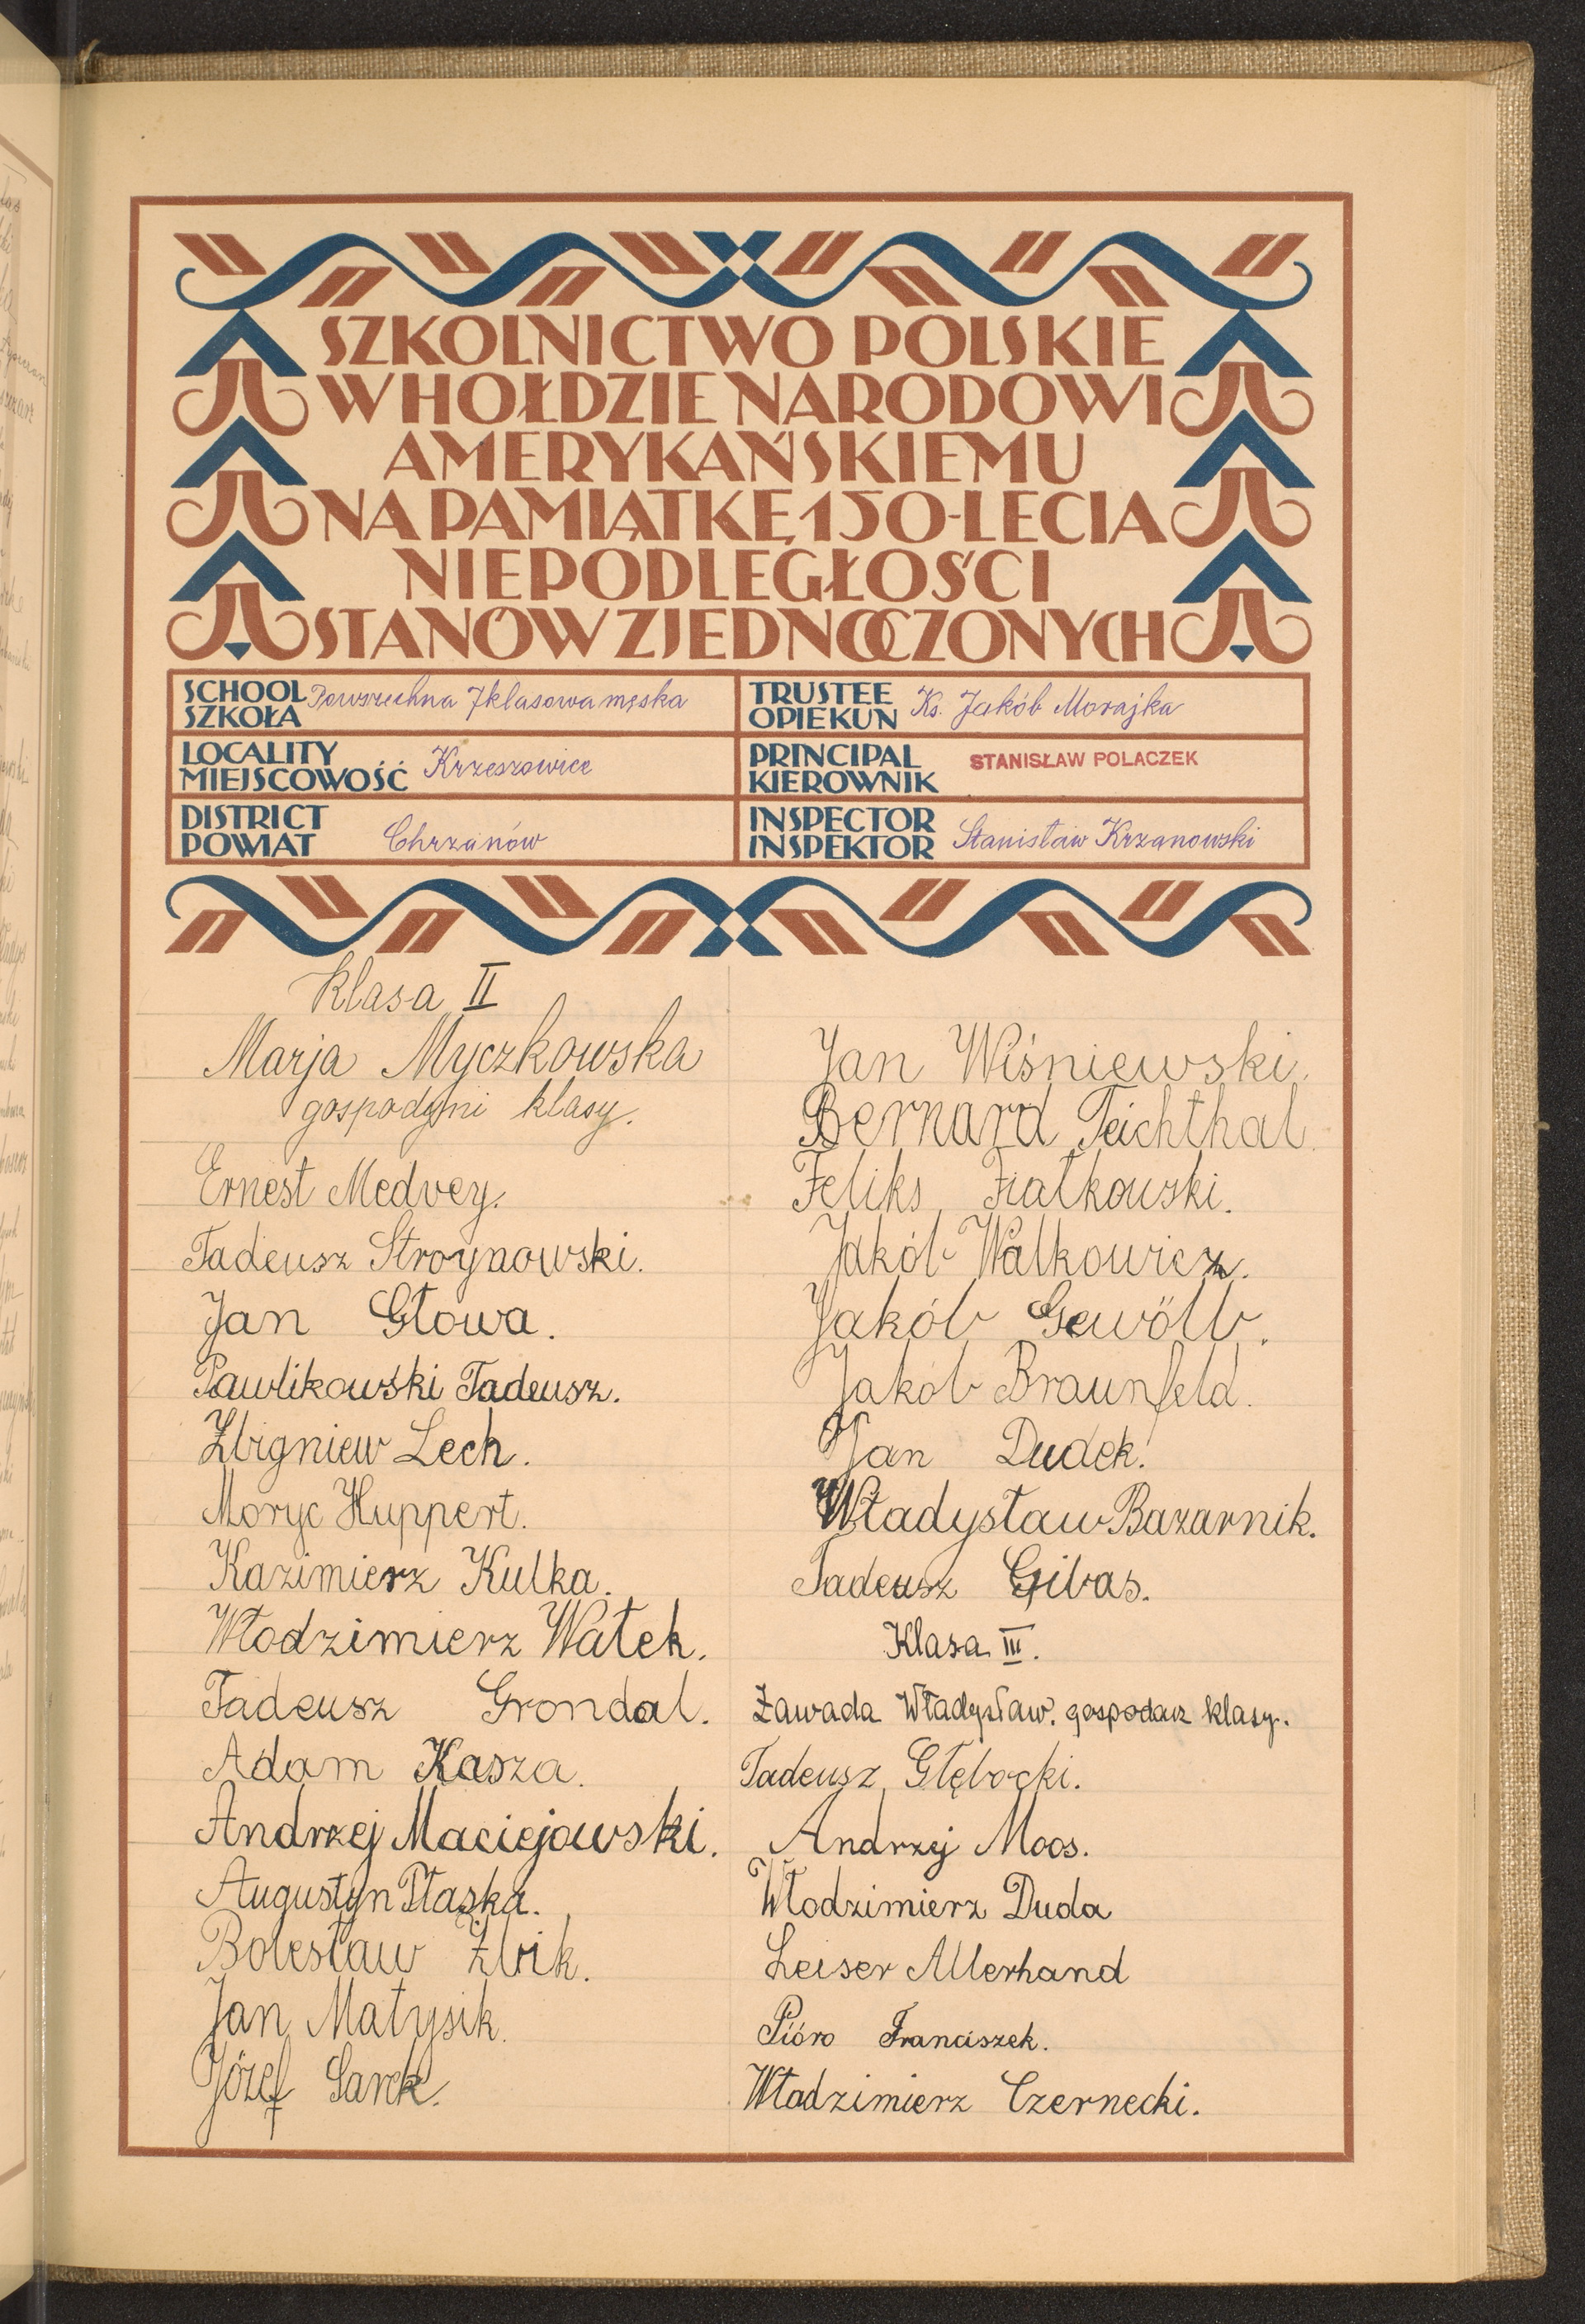 SZKOLNICTWO POLSKIE
W HOŁDZIE NARODOWI
AMERYKAŃSKIEMU
NA PAMIĄTKĘ 150-LECIA
NIEPODLEGŁOŚCI
STANÓW ZJEDNOCZONYCH
SCHOOL
SZKOŁA Powszechna 7klasowa męska
TRUSTEE
OPIEKUN Ks. Jakób Morajka
LOCALITY
MIEJSCOWOŚĆ Krzeszowice
PRINCIPAL
KIEROWNIK STANISŁAW POLACZEK
DISTRICT
POWIAT Chrzanów
INSPECTOR
INSPEKTOR Stanisław Krzanowski
Klasa II
Marja Myczkowska
gospodyni klasy.
Ernest Medvey.
Tadeusz Stroynowski.
Jan Głowa.
Pawlikowski Tadeusz.
Zbigniew Lech.
Moryc Huppert.
Kazimierz Kulka.
Włodzimierz Wałek.
Tadeusz Grondal.
Adam Kasza.
Andrzej Maciejowski.
Augustyn Płaska.
Bolesław Żbik.
Jan Matysik.
Józef Sarek.
Jan Wiśniewski.
Bernard Teichthal.
Feliks Fiałkowski.
Jakób Walkowicz.
Jakób Gewölb.
Jakób Braunfeld.
Jan Dudek.
Władysław Bazarnik.
Tadeusz Gibas.
Klasa III.
Zawada Władysław. gospodarz klasy.
Tadeusz Głębocki.
Andrzej Moos.
Włodzimierz Duda
Leiser Allerhand
Pióro Franciszek.
Włodzimierz Czernecki.